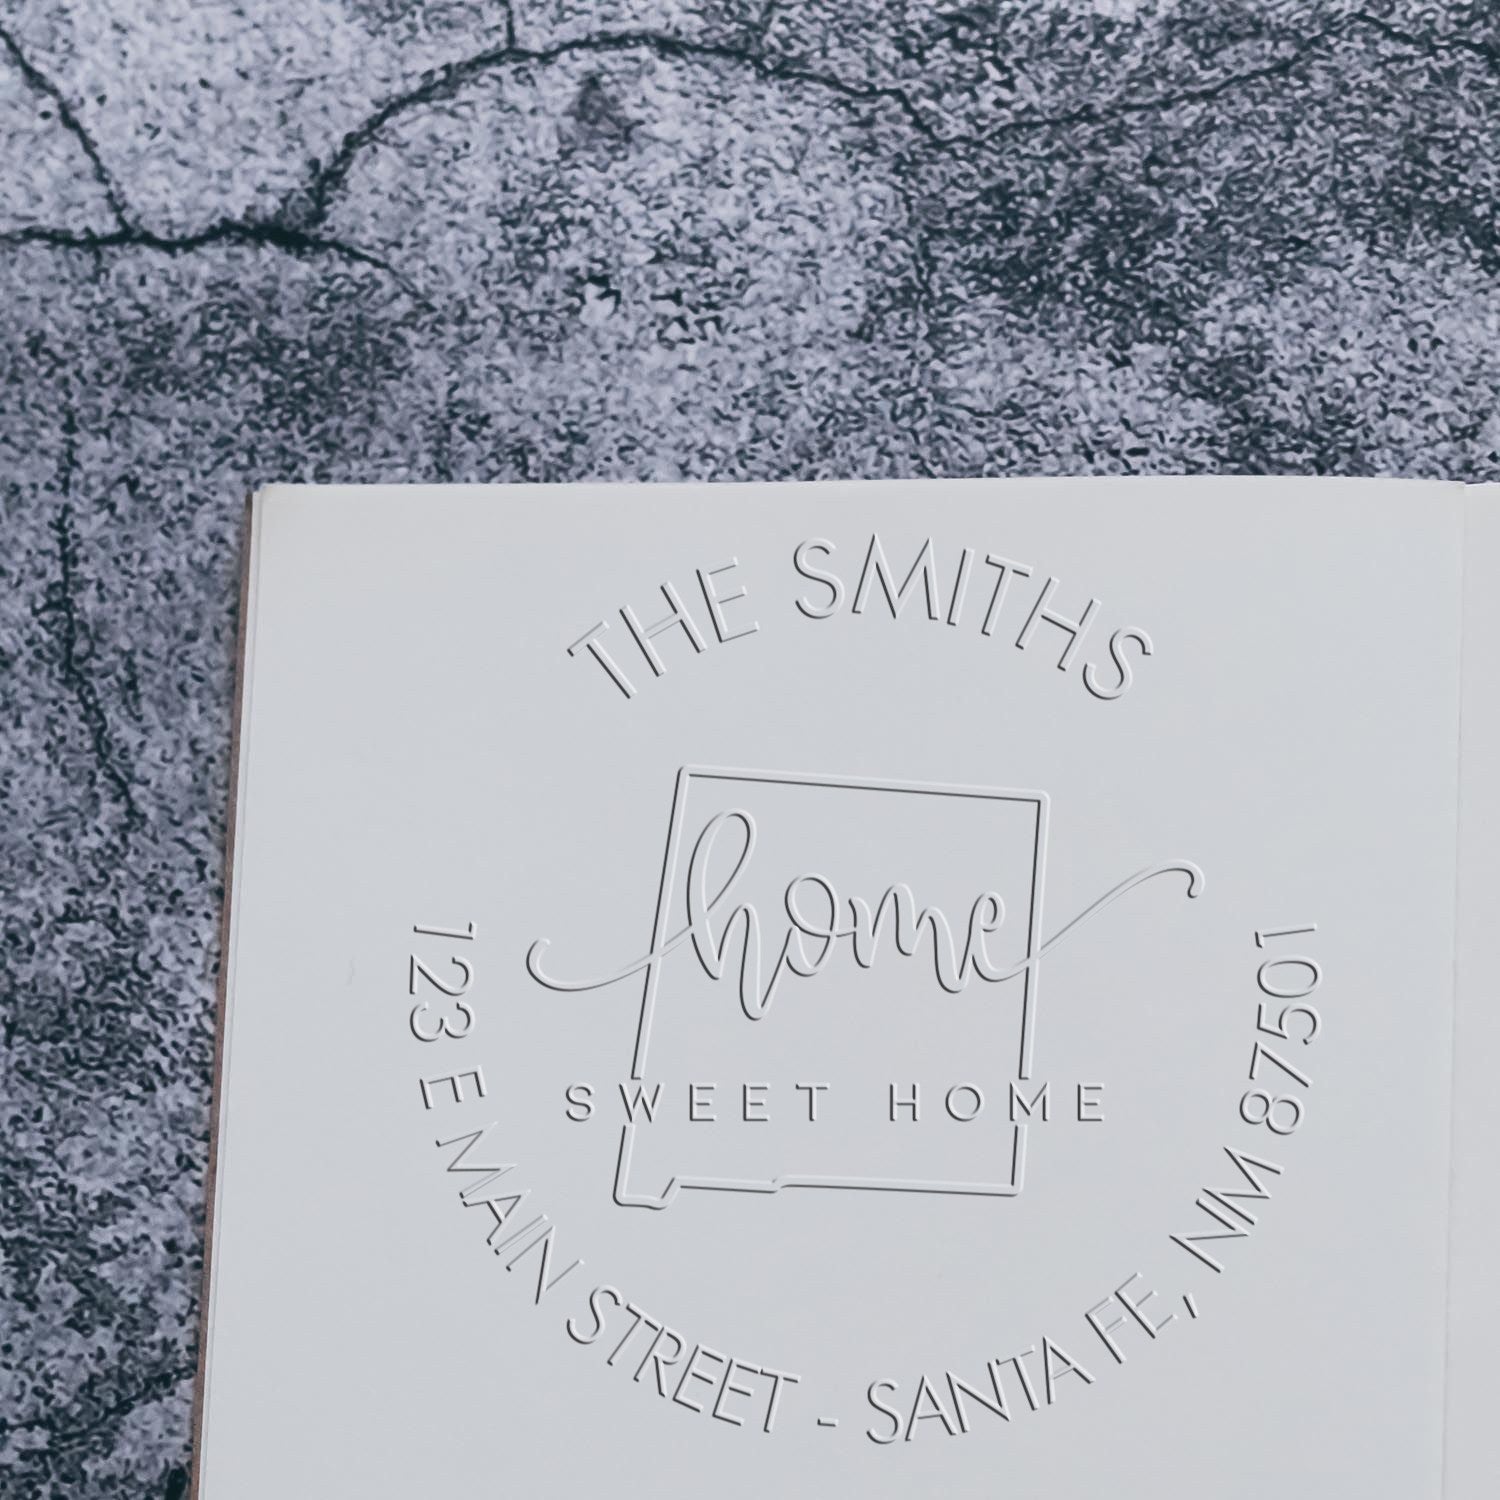 THE SMITHS
home
SWEET HOME
123 E MAIN STREET - SANTA FE, NM 87501